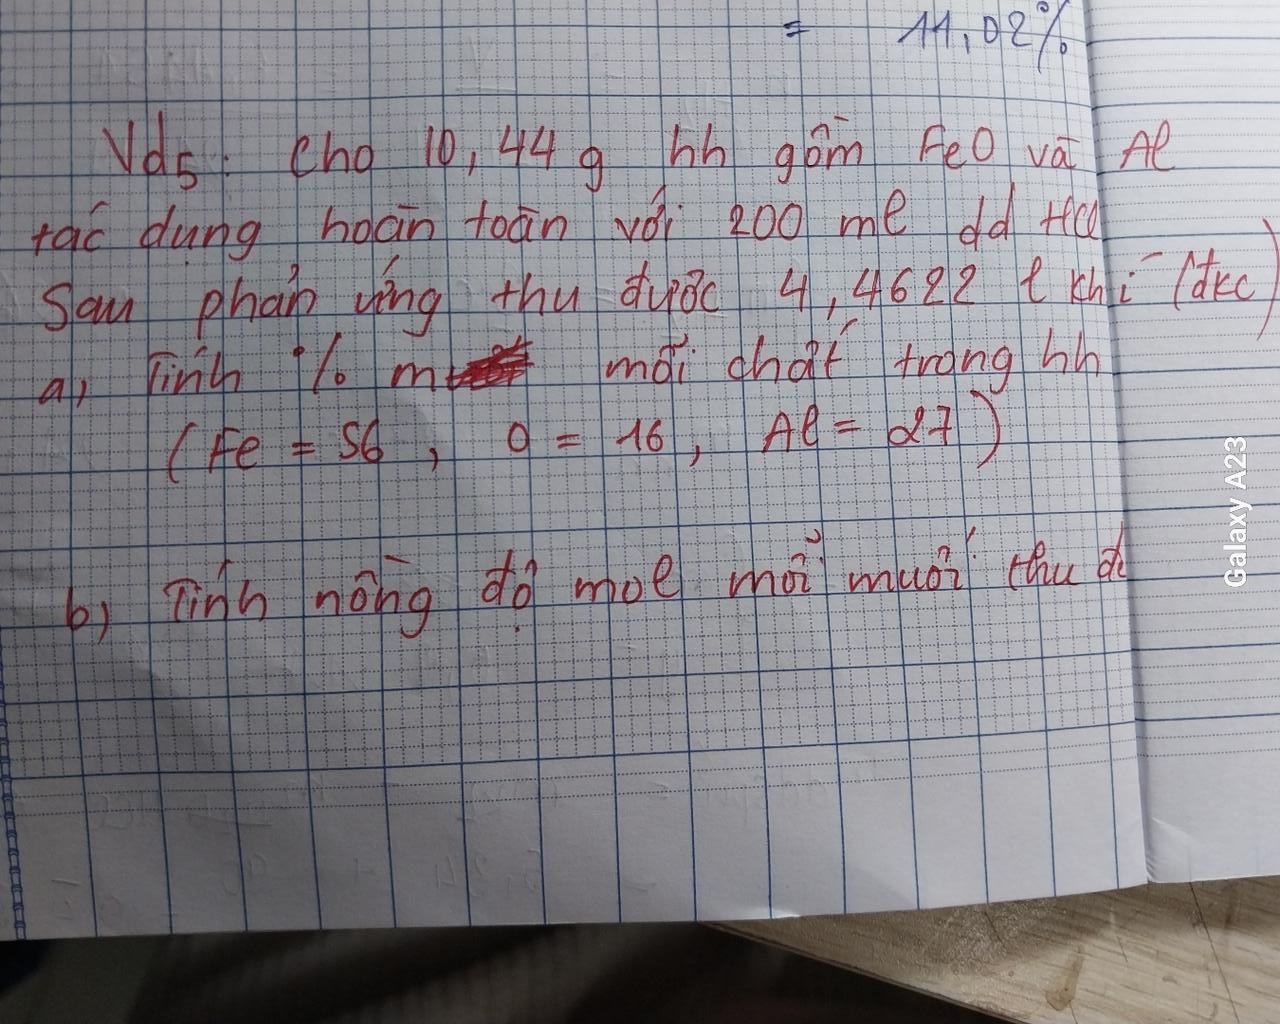 = 11,02%
Vd5: Cho 10,44 g hh gồm FeO và Al
tác dụng hoàn toàn với 200 ml dd HCl
Sau phản ứng thu được 4,4622 l khí (đkc)
a, Tính % m mỗi chất trong hh
(Fe = 56, O = 16, Al = 27)
b, Tính nồng độ mol mỗi muối thu đ
Galaxy A23